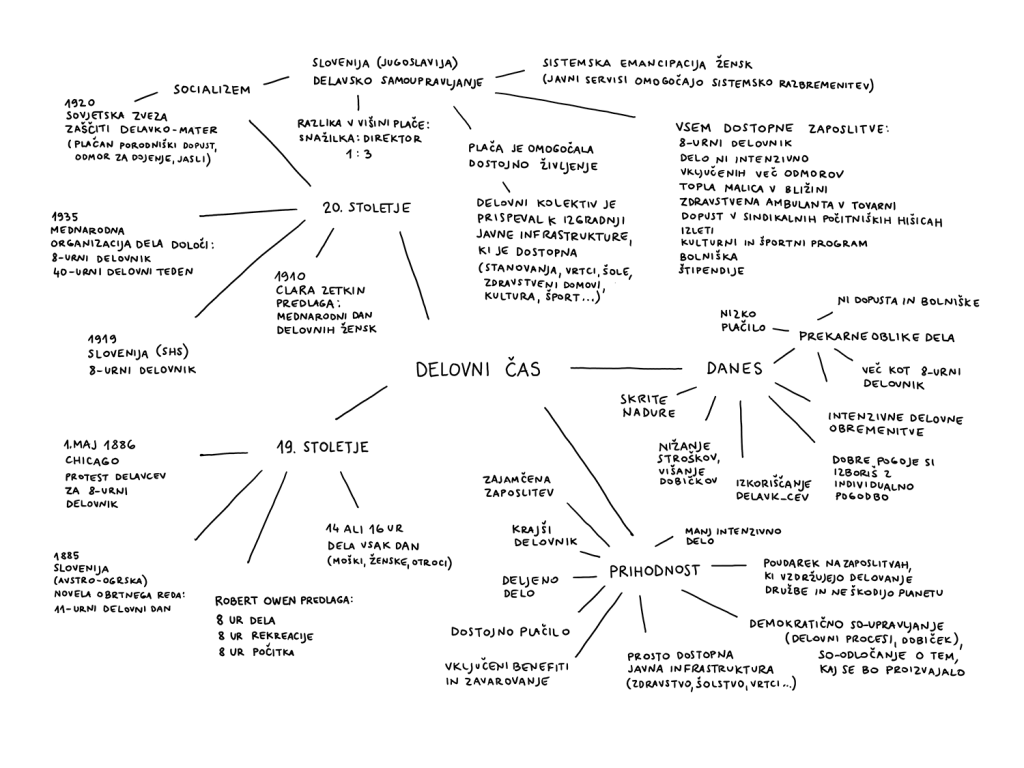 SLOVENIJA (JUGOSLAVIJA)
DELAVSKO SAMOUPRAVLJANJE
SISTEMSKA EMANCIPACIJA ŽENSK
(JAVNI SERVISI OMOGOČAJO SISTEMSKO RAZBREMENITEV)
SOCIALIZEM
1920
SOVJETSKA ZVEZA
ZAŠČITI DELAVKO-MATER
(PLAČAN PORODNIŠKI DOPUST,
ODMOR ZA DOJENJE, JASLI)
RAZLIKA V VIŠINI PLAČE:
SNAŽILKA: DIREKTOR
1:3
PLAČA JE OMOGOČALA
DOSTOJNO ŽIVLJENJE
VSEM DOSTOPNE ZAPOSLITVE:
8-URNI DELOVNIK
DELO NI INTENZIVNO
VKLJUČENIH VEČ ODMOROV
TOPLA MALICA V BLIŽINI
ZDRAVSTVENA AMBULANTA V TOVARNI
DOPUST V SINDIKALNIH POČITNIŠKIH HIŠICAH
IZLETI
KULTURNI IN ŠPORTNI PROGRAM
BOLNIŠKA
ŠTIPENDIJE
DELOVNI KOLEKTIV JE
PRISPEVAL K IZGRADNJI
JAVNE INFRASTRUKTURE,
KI JE DOSTOPNA
(STANOVANJA, VRTCI, ŠOLE,
ZDRAVSTVENI DOMOVI,
KULTURA, ŠPORT...)
20. STOLETJE
1935
MEDNARODNA
ORGANIZACIJA DELA DOLOČI:
8-URNI DELOVNIK
40-URNI DELOVNI TEDEN
1910
CLARA ZETKIN
PREDLAGA:
MEDNARODNI DAN
DELOVNIH ŽENSK
1919
SLOVENIJA (SHS)
8-URNI DELOVNIK
DELOVNI ČAS
DANES
NIZKO
PLAČILO
NI DOPUSTA IN BOLNIŠKE
PREKARNE OBLIKE DELA
VEČ KOT 8-URNI
DELOVNIK
SKRITE
NADURE
INTENZIVNE DELOVNE
OBREMENITVE
NIŽANJE
STROŠKOV,
VIŠANJE
DOBIČKOV
IZKORIŠČANJE
DELAVK_CEV
DOBRE POGOJE SI
IZBORIŠ Z
INDIVIDUALNO
POGODBO
19. STOLETJE
1. MAJ 1886
CHICAGO
PROTEST DELAVCEV
ZA 8-URNI
DELOVNIK
1885
SLOVENIJA
(AVSTRO-OGRSKA)
NOVELA OBRTNEGA REDA:
11-URNI DELOVNI DAN
ROBERT OWEN PREDLAGA:
8 UR DELA
8 UR REKREACIJE
8 UR POČITKA
14 ALI 16 UR
DELA VSAK DAN
(MOŠKI, ŽENSKE, OTROCI)
PRIHODNOST
ZAJAMČENA
ZAPOSLITEV
KRAJŠI
DELOVNIK
DELJENO
DELO
DOSTOJNO PLAČILO
VKLJUČENI BENEFITI
IN ZAVAROVANJE
MANJ INTENZIVNO
DELO
POUDAREK NA ZAPOSLITVAH,
KI VZDRŽUJEJO DELOVANJE
DRUŽBE IN NE ŠKODIJO PLANETU
DEMOKRATIČNO SO-UPRAVLJANJE
(DELOVNI PROCESI, DOBIČEK),
SO-ODLOČANJE O TEM,
KAJ SE BO PROIZVAJALO
PROSTO DOSTOPNA
JAVNA INFRASTRUKTURA
(ZDRAVSTVO, ŠOLSTVO, VRTCI...)